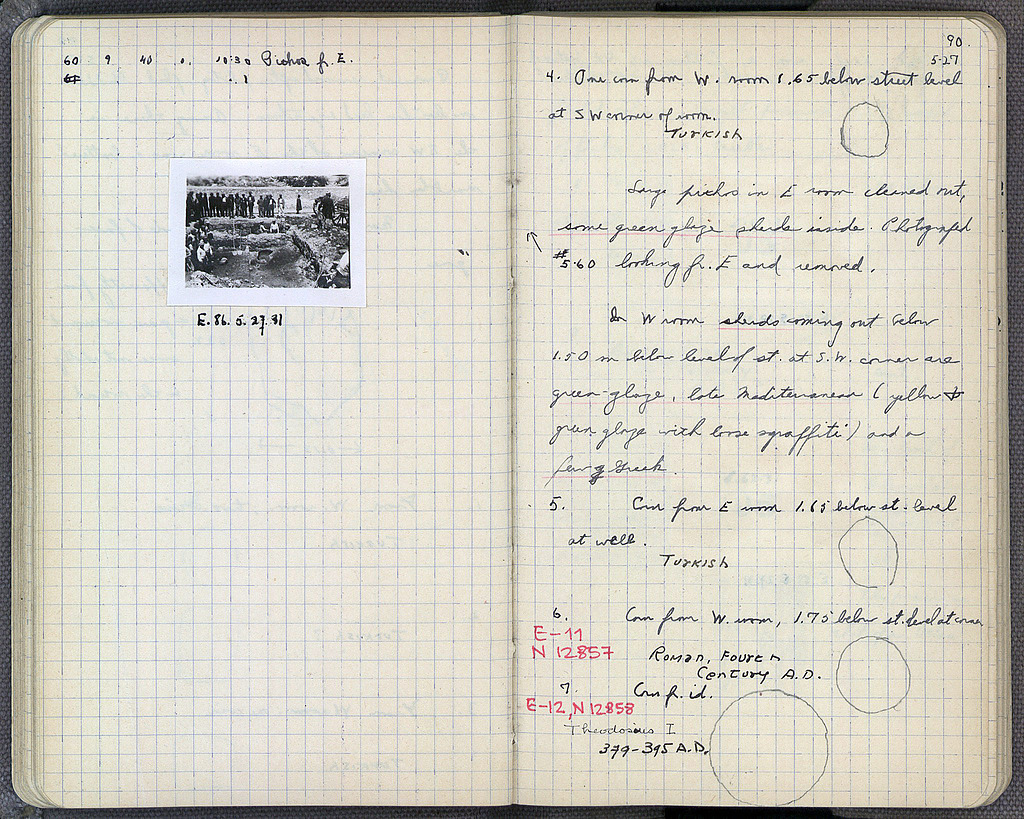 60 9 40 0. 10:30 Pithos fr. E.
61 " .1
E. 86. 5. 27. 31
90.
5-27
4. One coin from W. room 1.65 below street level
at SW corner of room.
Turkish
Large pithos in E room cleaned out,
some green glaze sherds inside. Photografed
#5.60 looking fr. E and removed.
In W room sherds coming out below
1.50 m below level of st. at S.W. corner are
green-glaze, late Mediterranean (yellow &
green glaze with loose sgraffiti) and a
few Greek.
5. Coin from E room 1.65 below st. level
at well.
Turkish
6. Coin from W. room, 1.75 below st. level at corner
E-11
N 12857
Roman, Fourth
Century A.D.
7. Coin fr. id.
E-12, N 12858
Theodosius I
379-395 A.D.